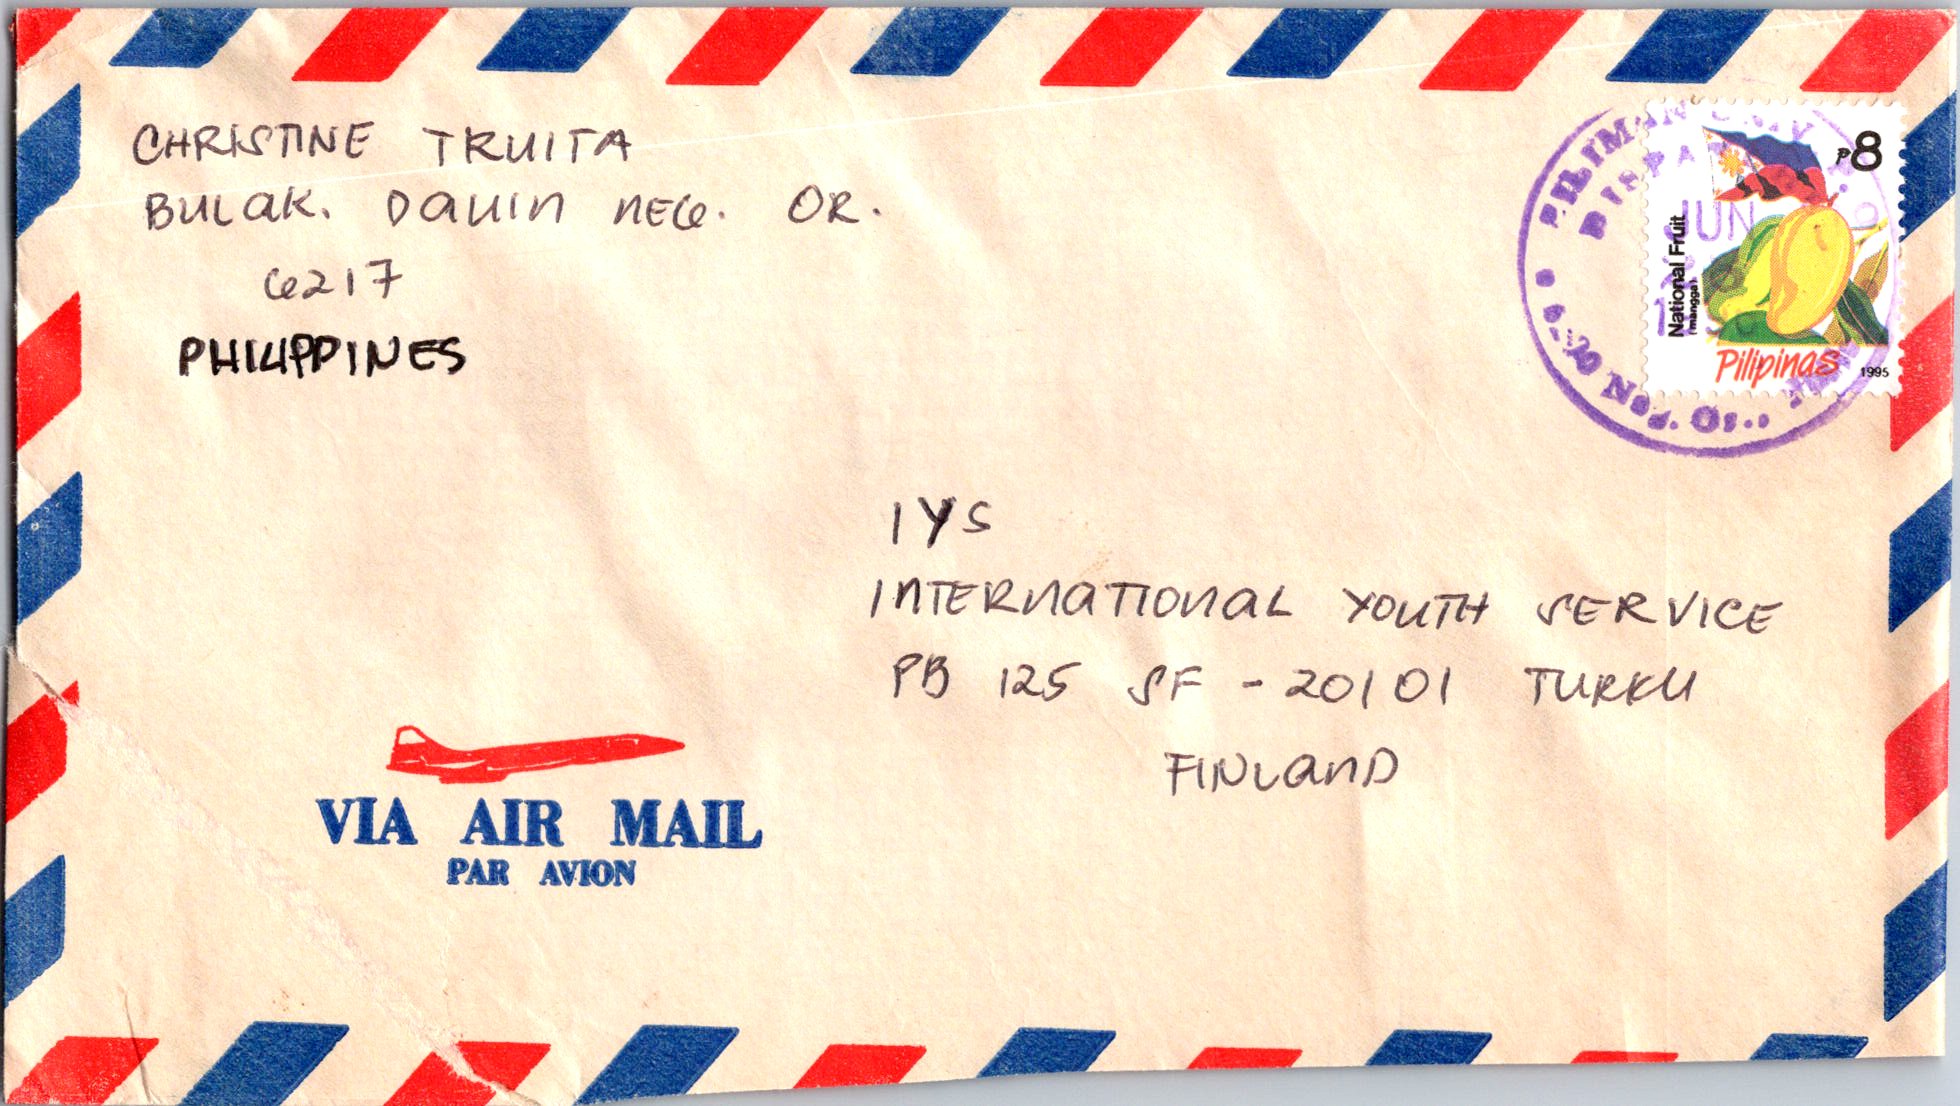 CHRISTINE TRUITA
BULAK. DAUIN NEG. OR.
6217
PHILIPPINES
₱8
National Fruit
(mangga)
Pilipinas
1995
JUN
IYS
INTERNATIONAL YOUTH SERVICE
PB 125 SF - 20101 TURKU
FINLAND
VIA AIR MAIL
PAR AVION